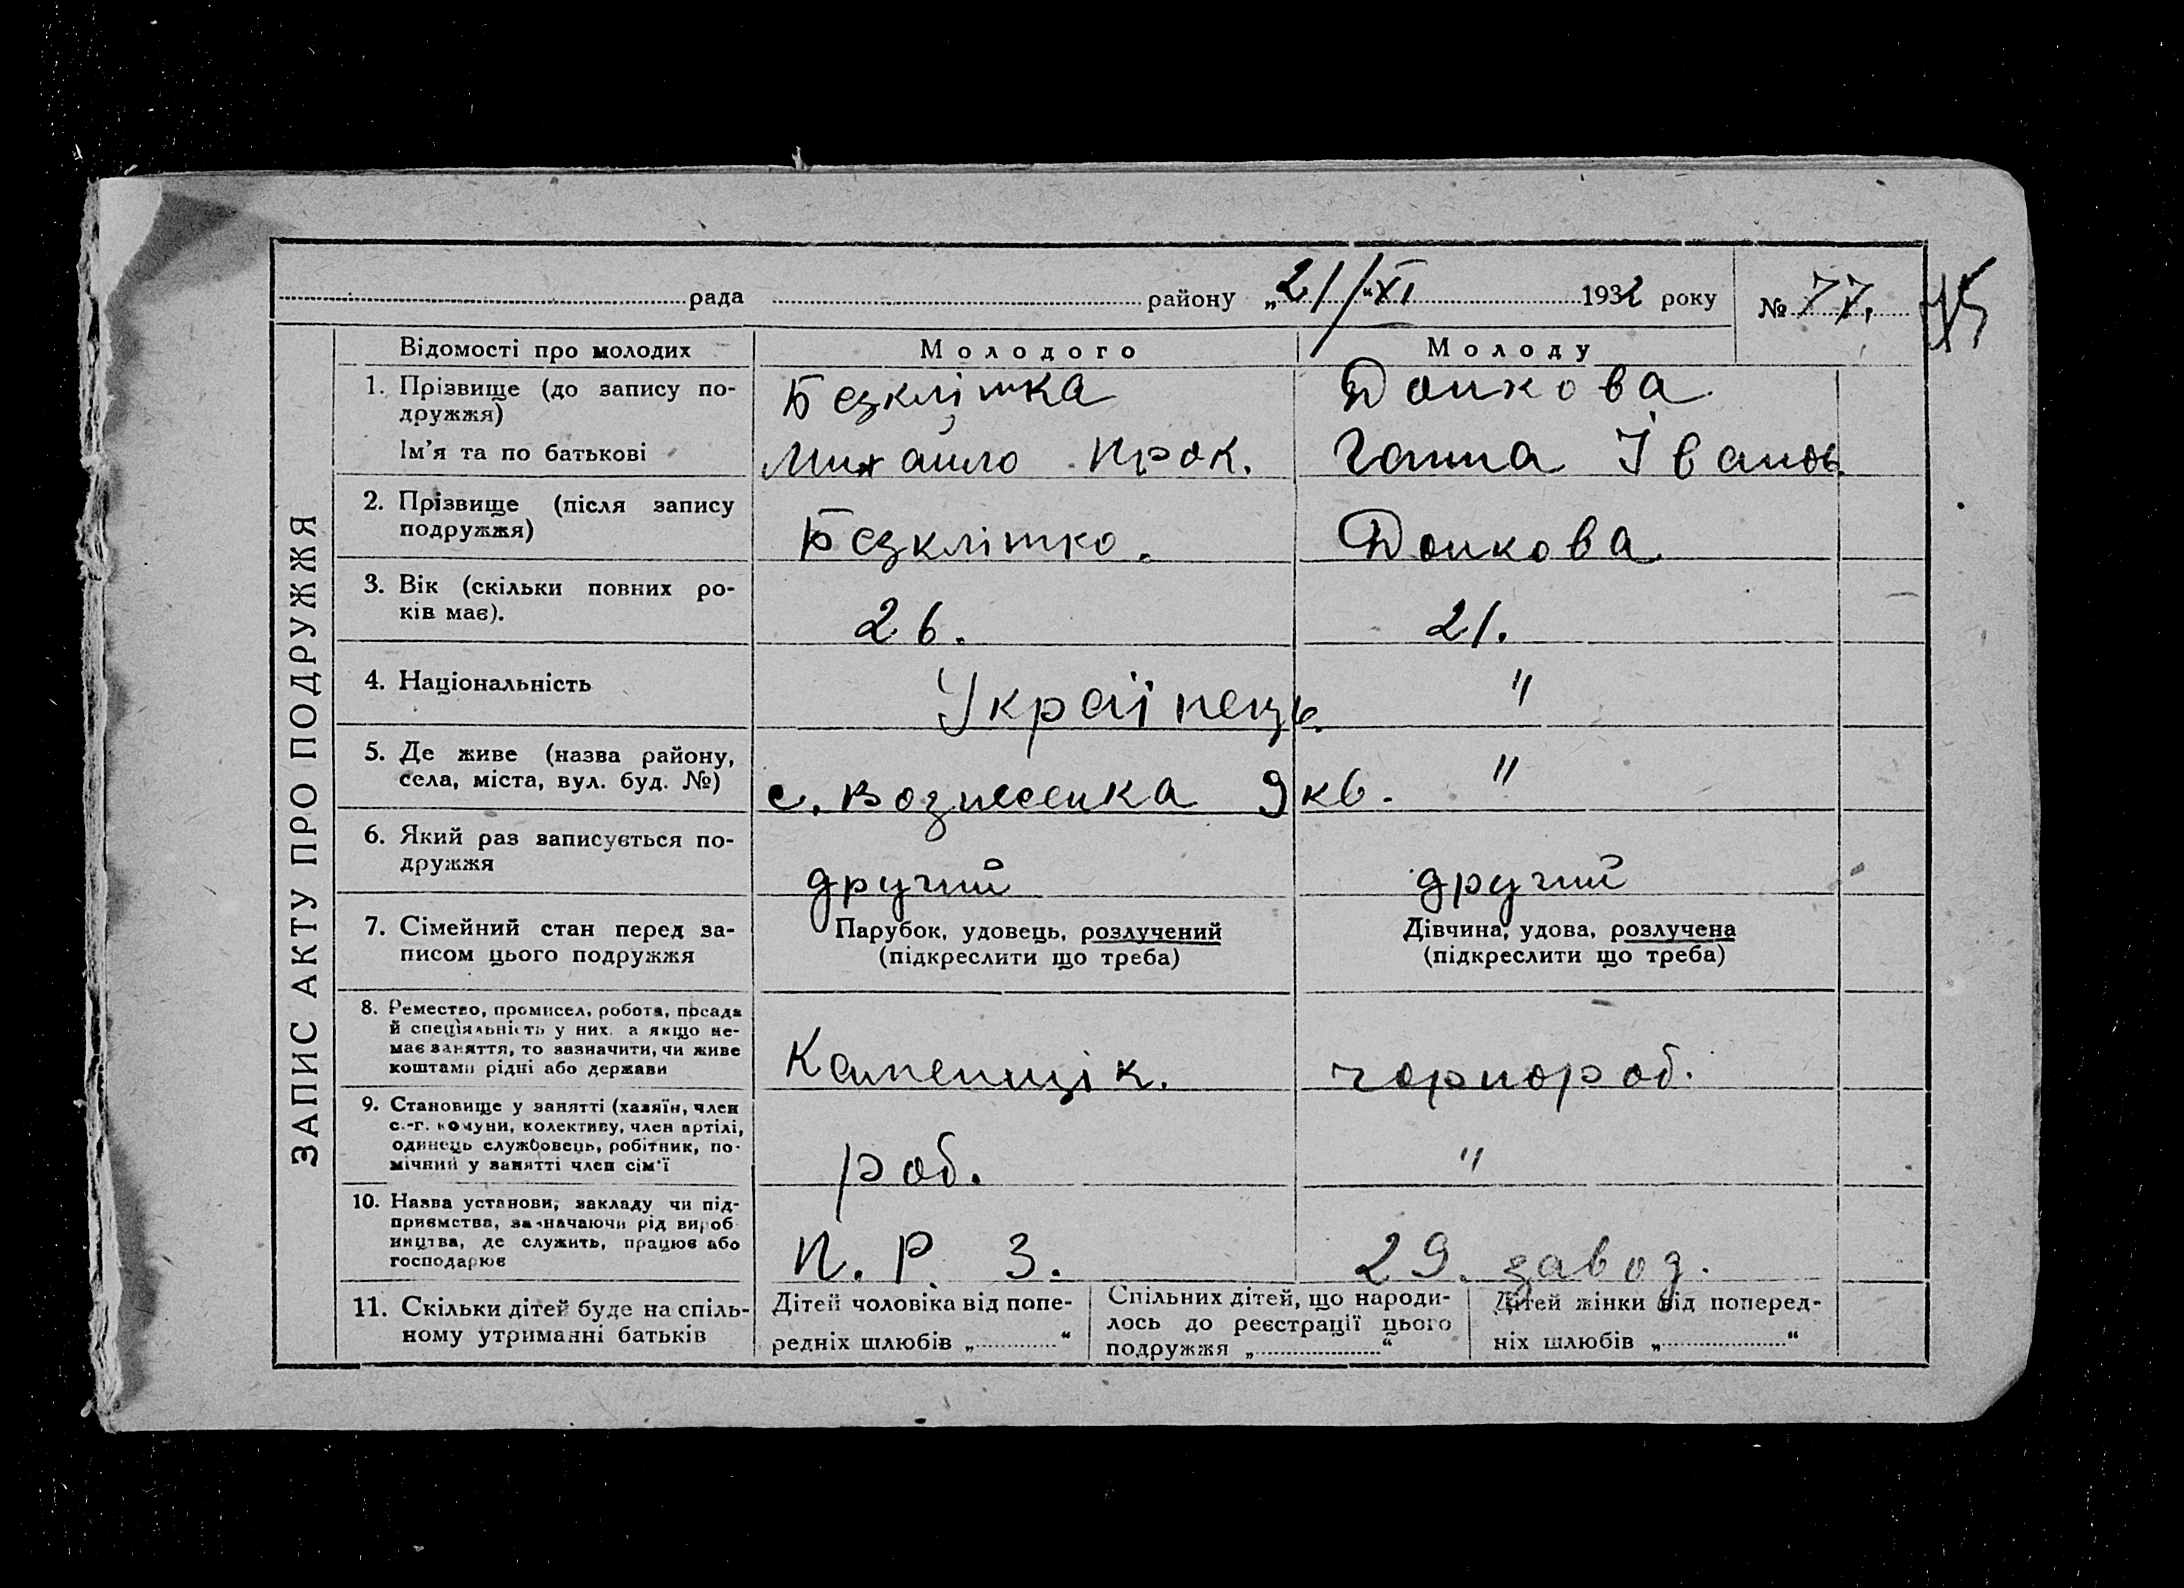 рада району „21/“XI 1932 року № 77.
ЗАПИС АКТУ ПРО ПОДРУЖЖЯ
Відомості про молодих Молодого Молоду
1. Прізвище (до запису по-
дружжя) Безклітка Донкова
Ім'я та по батькові Михайло Прок. Ганна Іванов.
2. Прізвище (після запису
подружжя) Безклітко. Донкова
3. Вік (скільки повних ро-
ків має). 26. 21.
4. Національність Українець. "
5. Де живе (назва району,
села, міста, вул. буд. №) с. Вознесенка 9 кв. "
6. Який раз записується по-
дружжя другий другий
7. Сімейний стан перед за- Парубок, удовець, розлучений Дівчина, удова, розлучена
писом цього подружжя (підкреслити що треба) (підкреслити що треба)
8. Ремество, промисел, робота, посада
й спеціяльність у них, а якщо не-
має заняття, то зазначити, чи живе
коштами рідні або держави Каменщік. чорнороб.
9. Становище у занятті (хазяїн, член
с.-г. комуни, колективу, член артілі,
одинець службовець, робітник, по-
мічний у занятті член сім'ї роб. "
10. Назва установи, закладу чи під-
приємства, зазначаючи рід вироб-
ництва, де служить, працює або
господарює П. Р. З. 29. завод.
11. Скільки дітей буде на спіль- Дітей чоловіка від попе- Спільних дітей, що народи- Дітей жінки від поперед-
ному утриманні батьків редніх шлюбів „ “ лось до реєстрації цього ніх шлюбів „ “
подружжя „ “